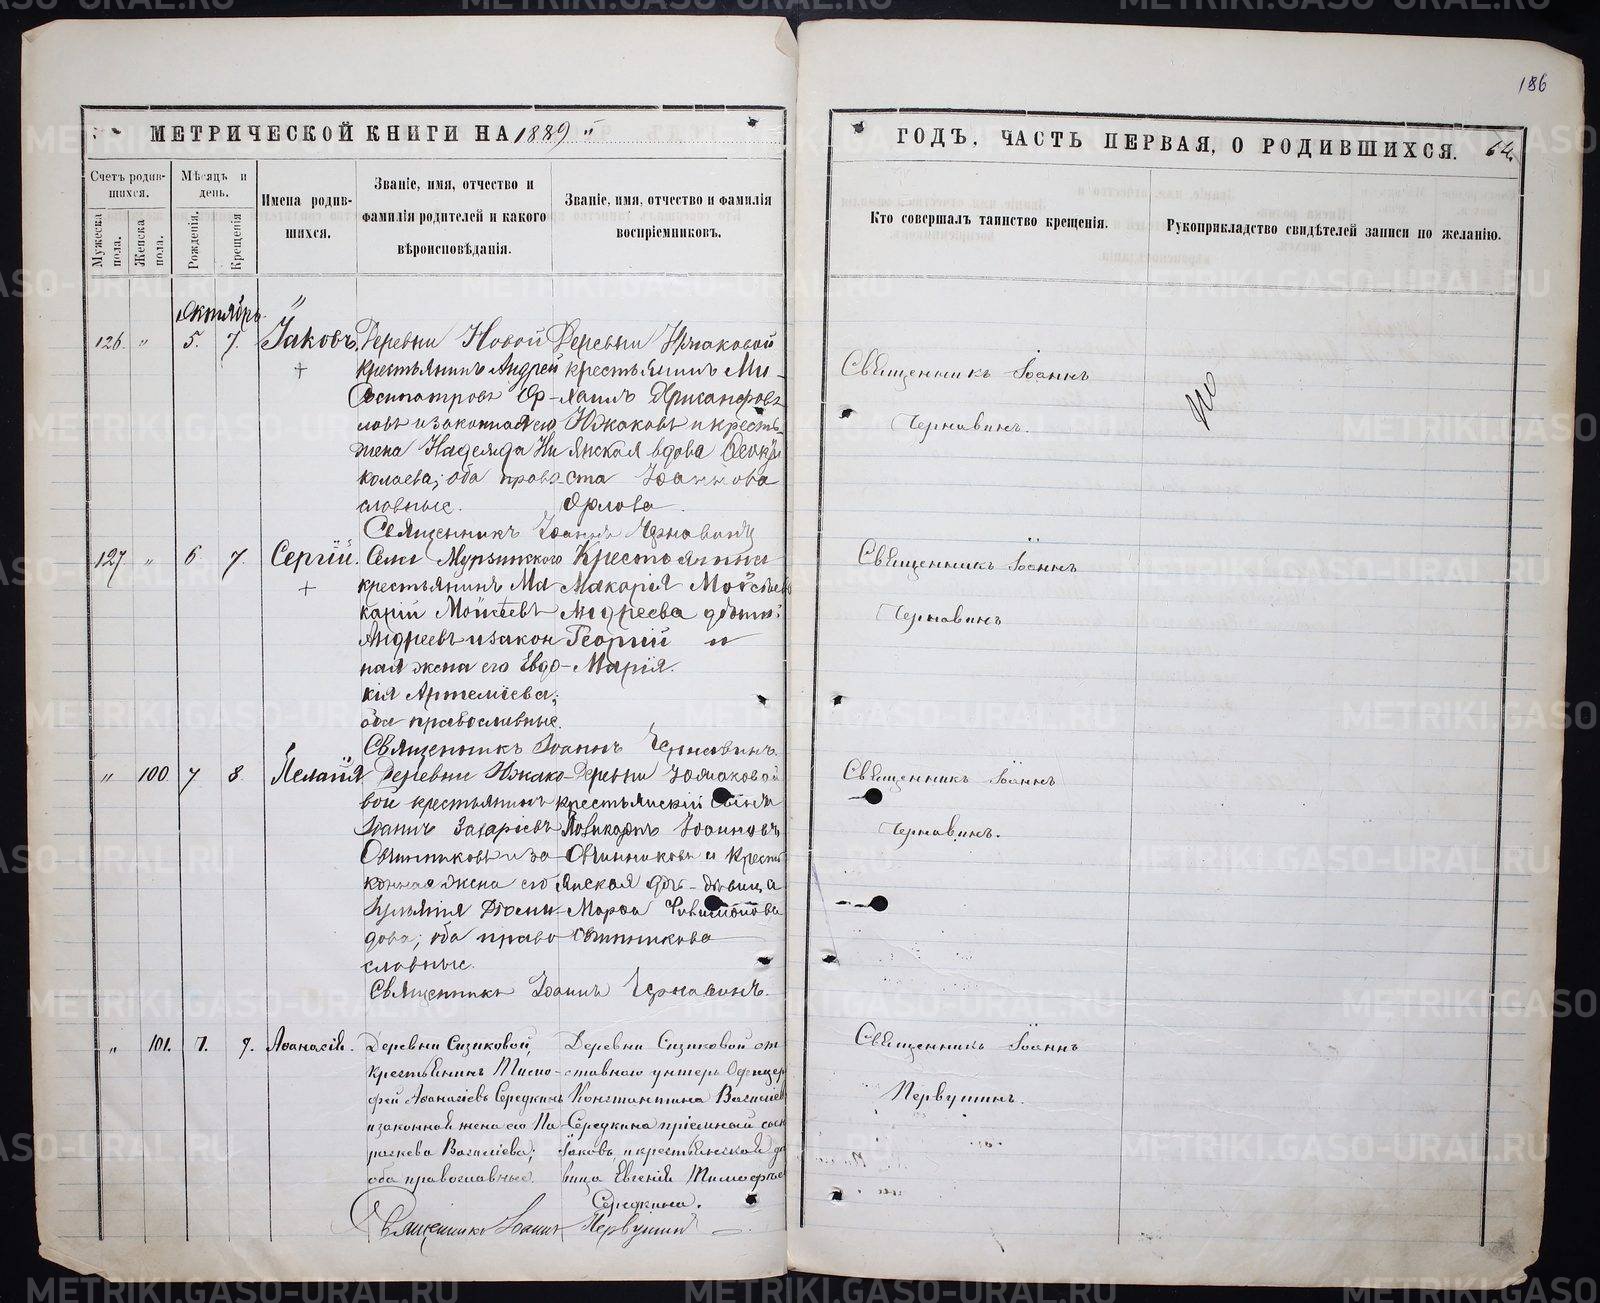 186
МЕТРИЧЕСКОЙ КНИГИ НА 1889 "
ГОДЪ, ЧАСТЬ ПЕРВАЯ, О РОДИВШИХСЯ. 64.
Счетъ родив-
шихся.
Мужеска
пола.
Женска
пола.
Мѣсяцъ и
день.
Рожденія.
Крещенія
Имена родив-
шихся.
Званіе, имя, отчество и
фамилія родителей и какого
вѣроисповѣданія.
Званіе, имя, отчество и фамилія
воспріемниковъ.
Кто совершалъ таинство крещенія.
Рукоприкладство свидѣтелей записи по желанію.
Октября
126. " 5. 7. Іаковъ.
+
Деревни Новой
крестьянинъ Андрей
Сосипатровъ Ор-
ловъ и законная его
жена Надежда Ни
колаева; оба право
славные.
Деревни
крестьянинъ Ми-
хаилъ Хрисанфовъ
Южаковъ и кресть-
янская вдова
ста Іоаннова
Орлова.
Священникъ Іоаннъ
Чернавинъ.
Священникъ Іоаннъ Чернавинъ
127. " 6. 7. Сергій.
+
Села Мурзинского
крестьянинъ Ма
карій Моѵсеевъ
Андреевъ и закон
ная жена его Евдо-
кія Артеміева;
оба православные.
Крестьянина
Макарія Моѵсѣева
Андреева дѣти:
Георгій и
Марія.
Священникъ Іоаннъ
Чернавинъ
Священникъ Іоаннъ Чернавинъ
" 100 7 8. Пелагія
Деревни Южако-
вой крестьянинъ
Іоаннъ Захаріевъ
Овчинниковъ и за
конная жена его
дова; оба право
славные.
Деревни Южаковой
крестьянскій сынъ
Поликарпъ Іоанновъ
Овчинниковъ и кресть
янская дѣвица
Овчинникова
Священникъ Іоаннъ
Чернавинъ.
Священникъ Іоаннъ Чернавинъ.
" 101. 7. 9. Аѳанасія.
Деревни Сизиковой,
крестьянинъ Тимо-
фей Аѳанасіевъ Середкинъ
и законная жена его Па
раскева Василіева;
оба православные.
Деревни Сизиковой от
ставного унтеръ Офицера
Константина Василіева
Середкина пріемный сынъ
Іаковъ, и крестьянская дѣ
вица Евгенія Тимофѣева
Середкина.
Священникъ Іоаннъ
Первушинъ.
Священникъ Іоаннъ Первушинъ
METRIKI.GASO-URAL.RU